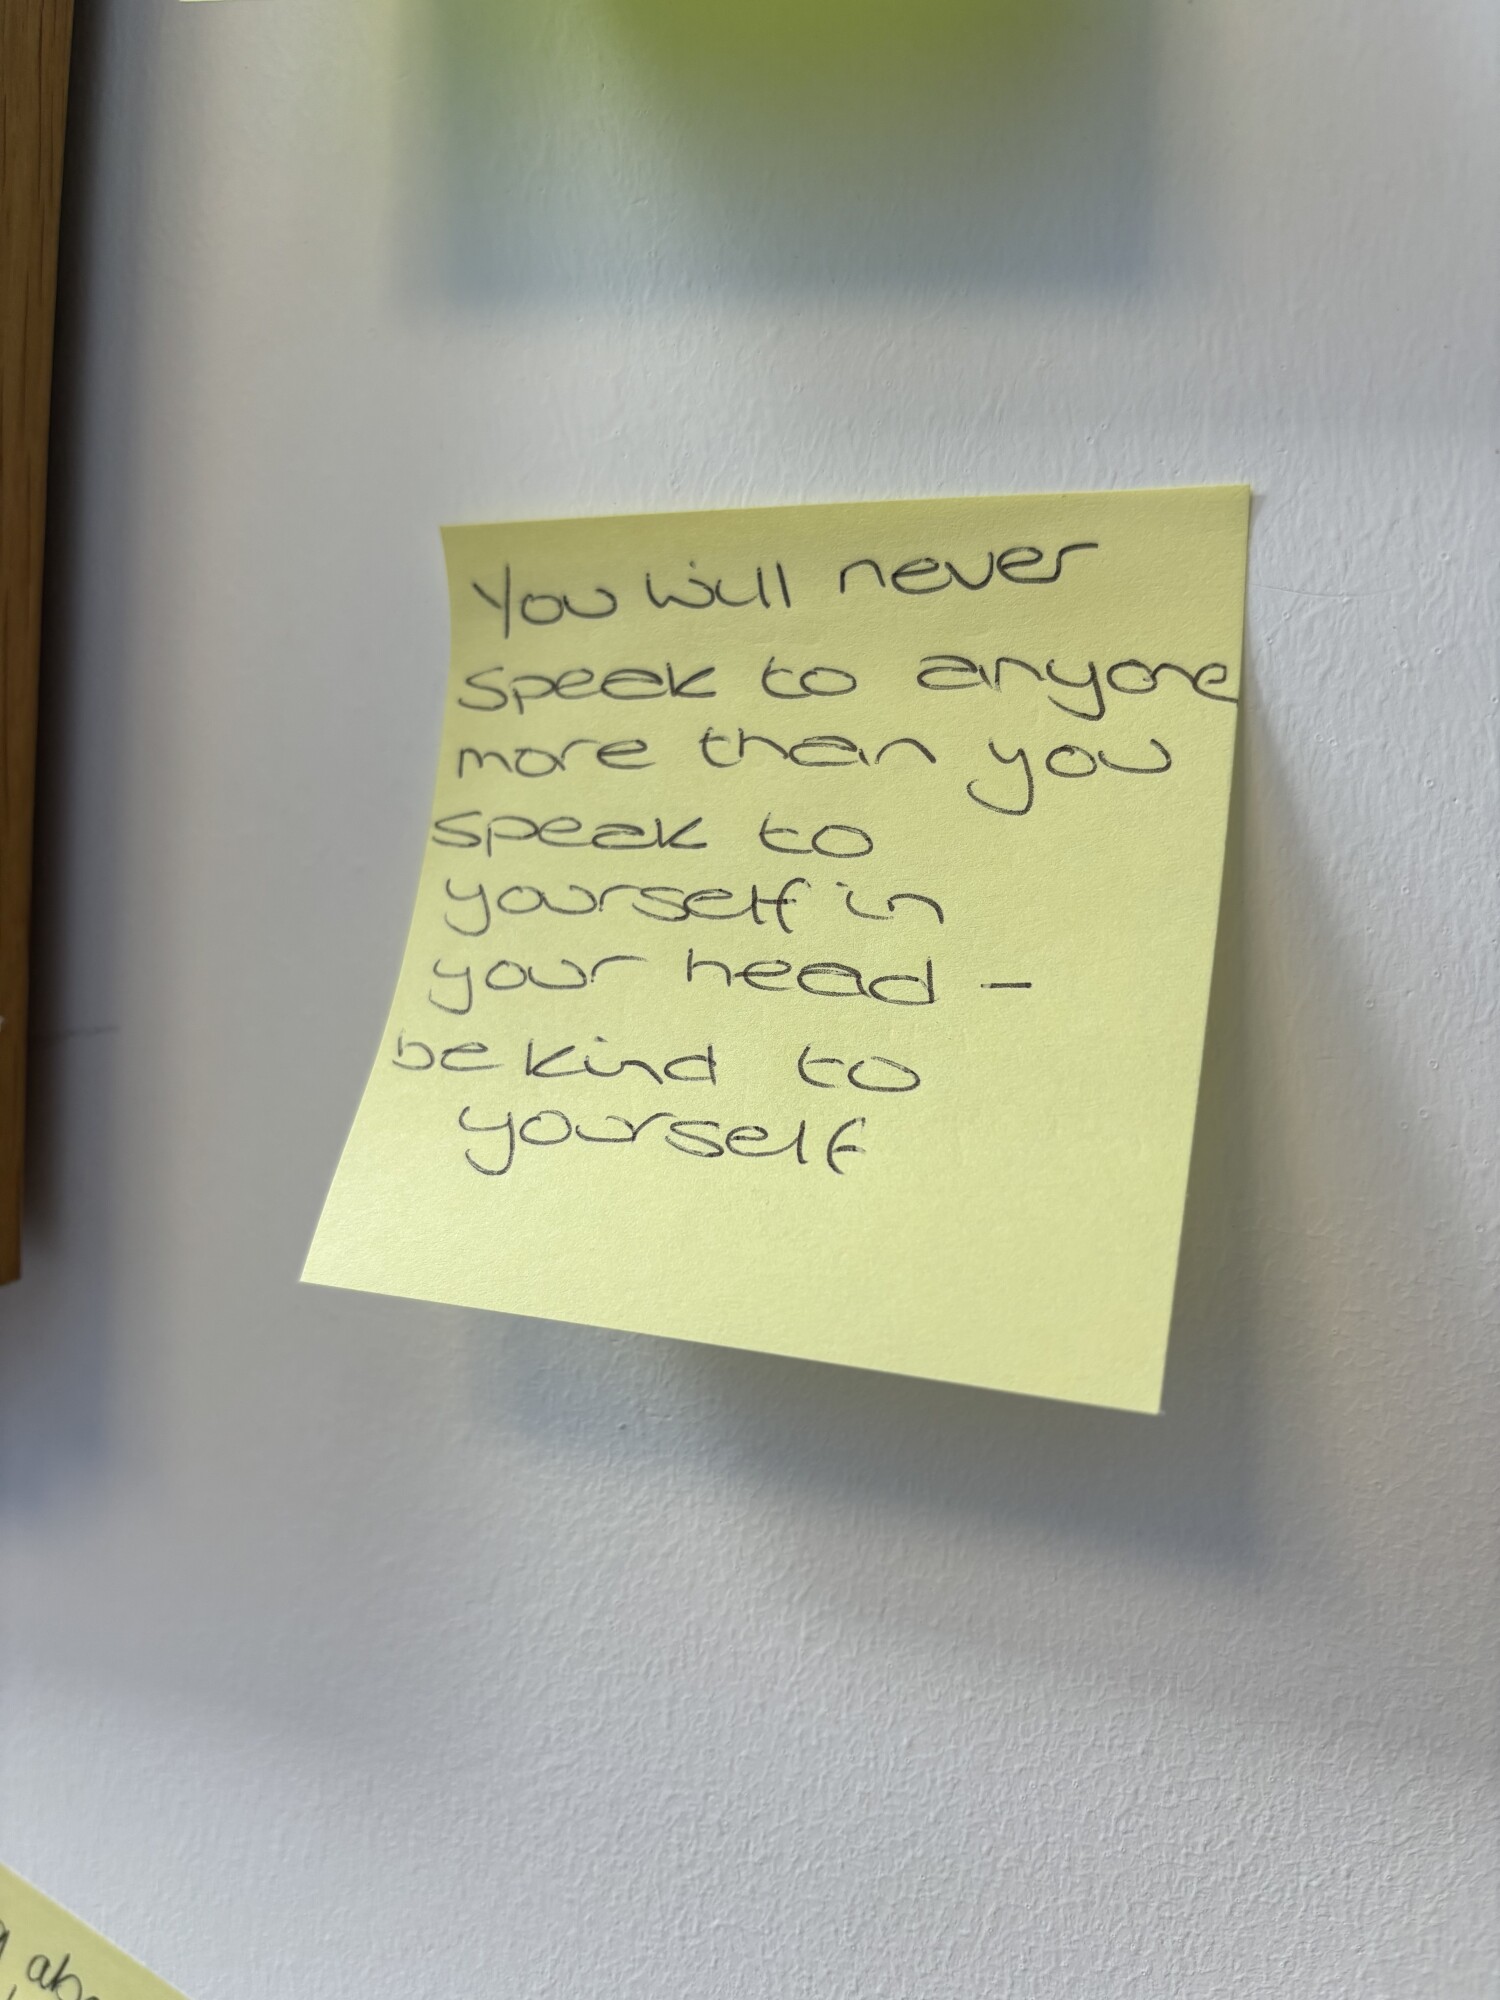 You will never
speak to anyone
more than you
speak to
yourself in
your head -
be kind to
yourself